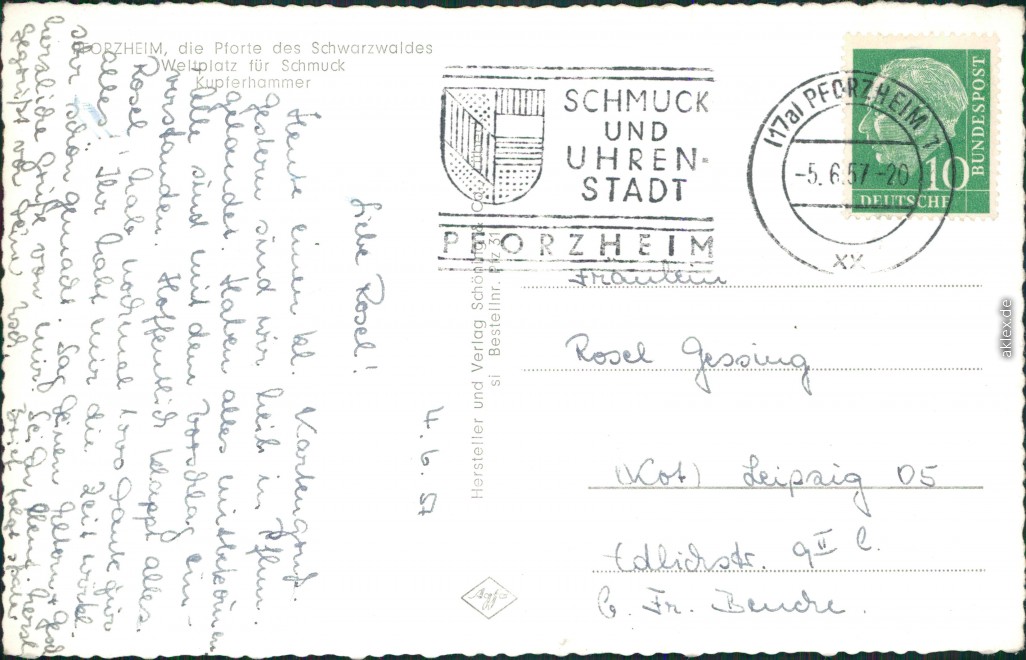 PFORZHEIM, die Pforte des Schwarzwaldes
Weltplatz für Schmuck
Kupferhammer
SCHMUCK
UND
UHREN-
STADT
PFORZHEIM
(17a) PFORZHEIM 1
-5.6.57-20
xx
10
DEUTSCHE
BUNDESPOST
Hersteller und Verlag Schöning
si Bestellnr. Pfz 31
Agfa
4.6.57
Liebe Rosel!
Heute einen kl. Kartengruß.
Gestern sind wir heil in Pfhm.
gelandet. Haben alles mitbekommen
Alle sind mit dem Vorschlag ein-
verstanden. Hoffentlich klappt alles.
Rosel, hab nochmal 1000 Dank für
alles! Ihr habt mir die Zeit wirkl.
sehr schön gemacht. Sag Deinen Eltern
herzliche Grüße von mir! Sei Du
gegrüßt von Deiner
Brief folgt
Fräulein
Rosel Gessing
Leipzig O5
9 II l.
b. Fr.
aklex.de